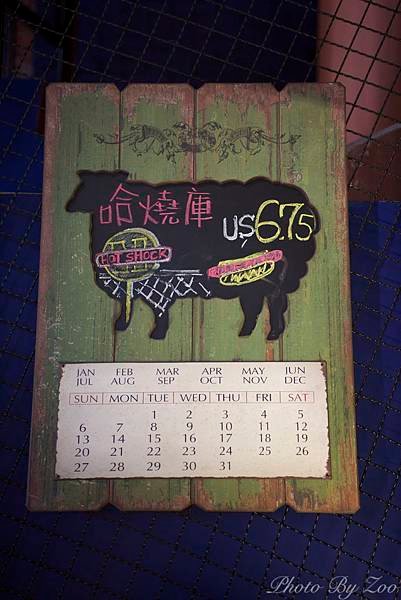 哈燒庫
US 6.75
HOT SHOCK
JAN FEB MAR APR MAY JUN
JUL AUG SEP OCT NOV DEC
SUN MON TUE WED THU FRI SAT
1 2 3 4 5
6 7 8 9 10 11 12
13 14 15 16 17 18 19
20 21 22 23 24 25 26
27 28 29 30 31
Photo By Zoo